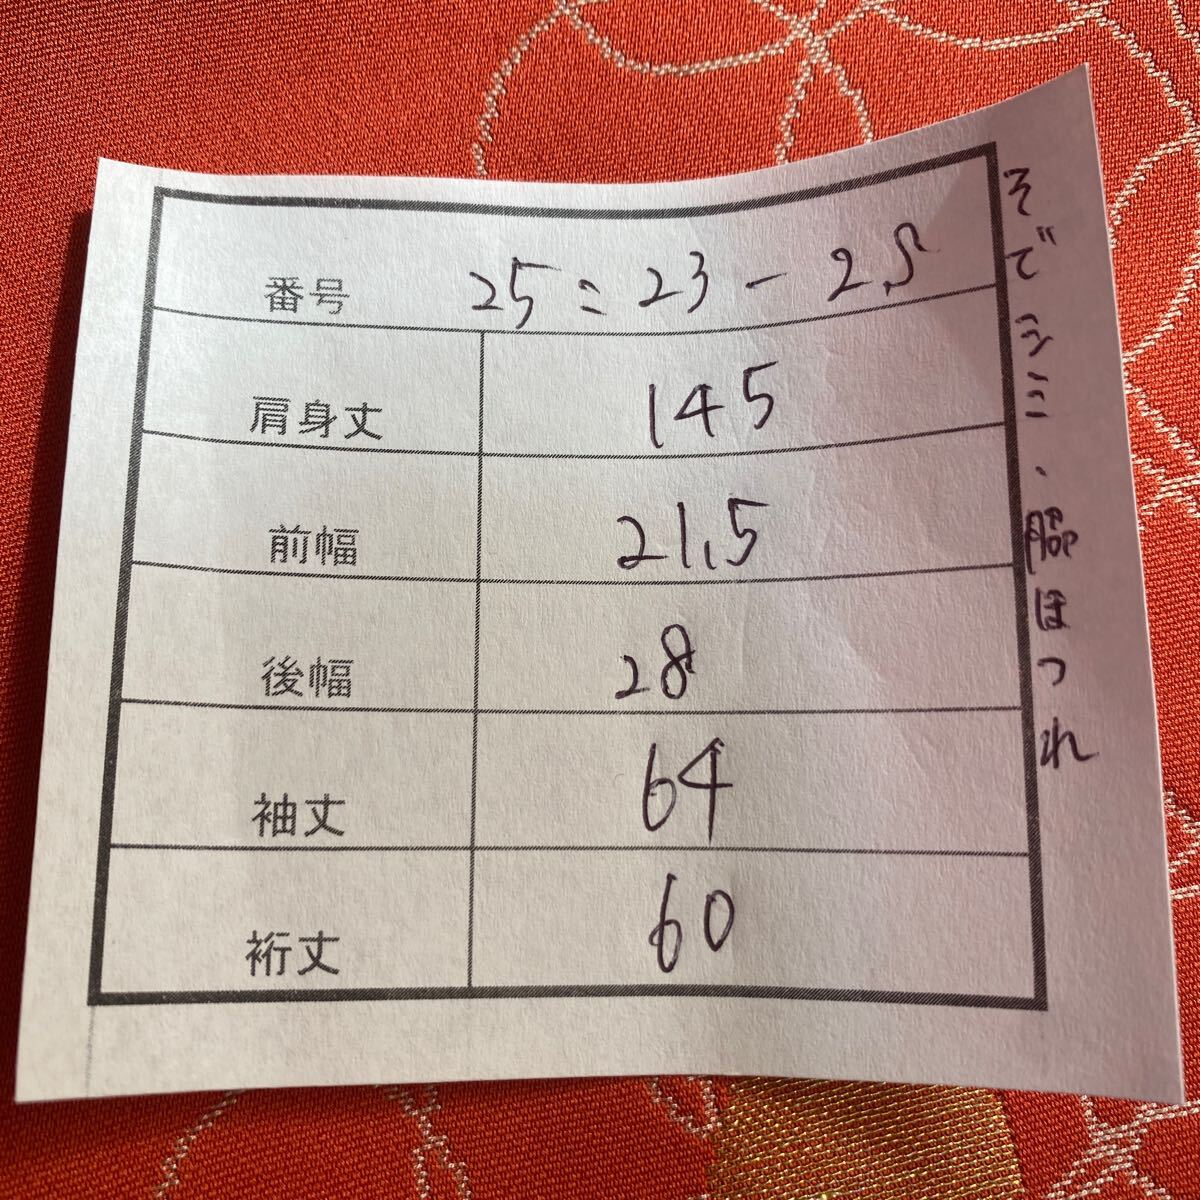 番号 25:23-25
肩身丈 145
前幅 21.5
後幅 28
袖丈 64
裄丈 60
そでシミ、脇ほつれ